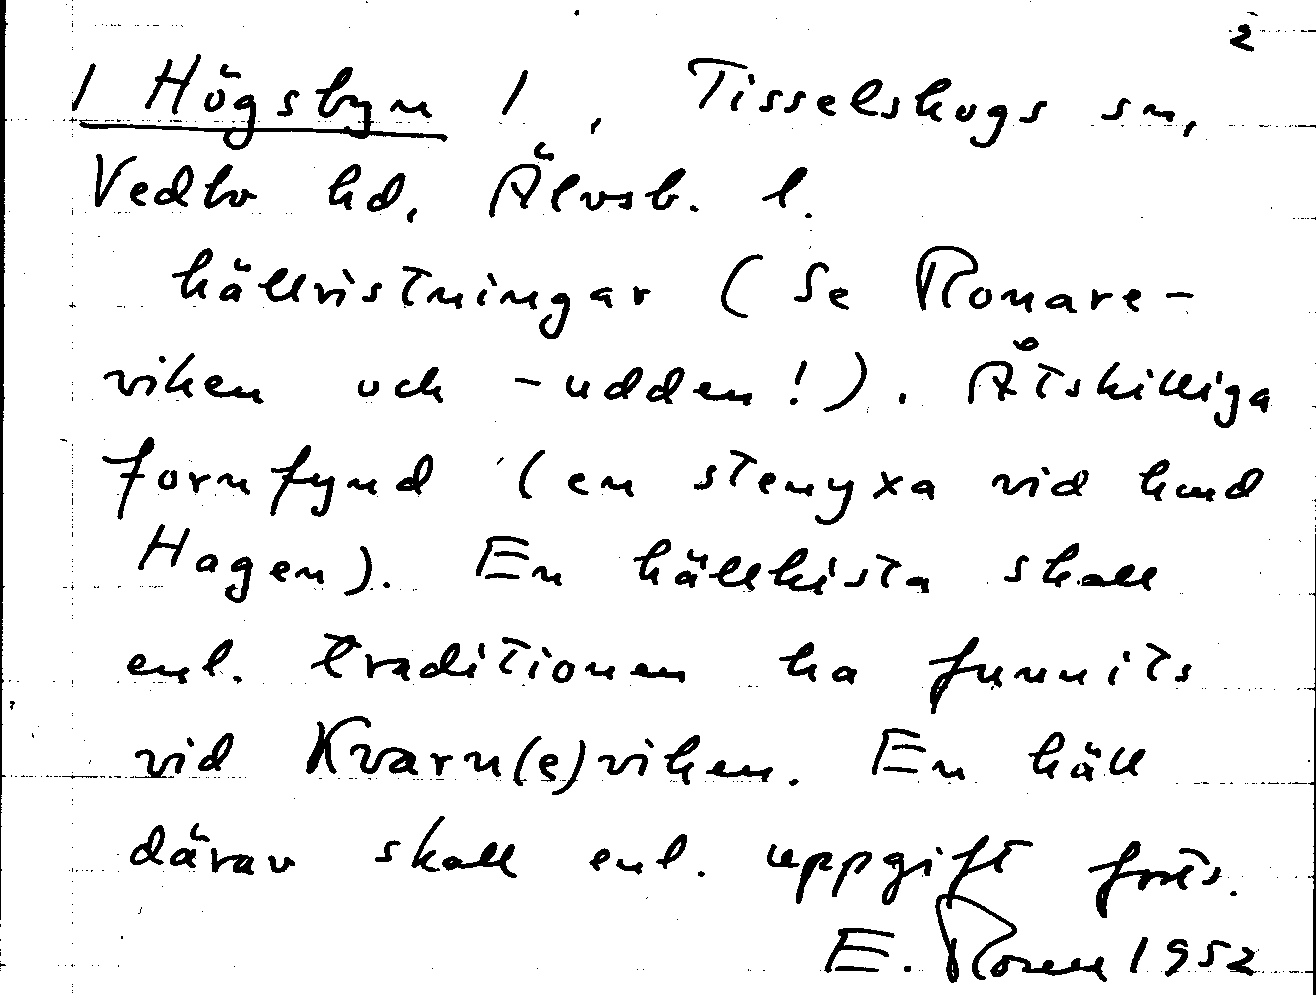 2
/ Högsbyn /, Tisselskogs sn,
Vedbo hd, Älvsb. l.
hällristningar (Se Ronare-
viken och -udden!). Åtskilliga
fornfynd (en stenyxa vid
Hagen). En hällkista skall
enl. traditionen ha funnits
vid Kvarn(e)viken. En häll
därav skall enl. uppgift forts.
E. 1952